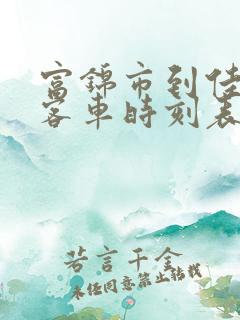 富锦市到佳
客车时刻表
若言千金
未经同意禁止转载